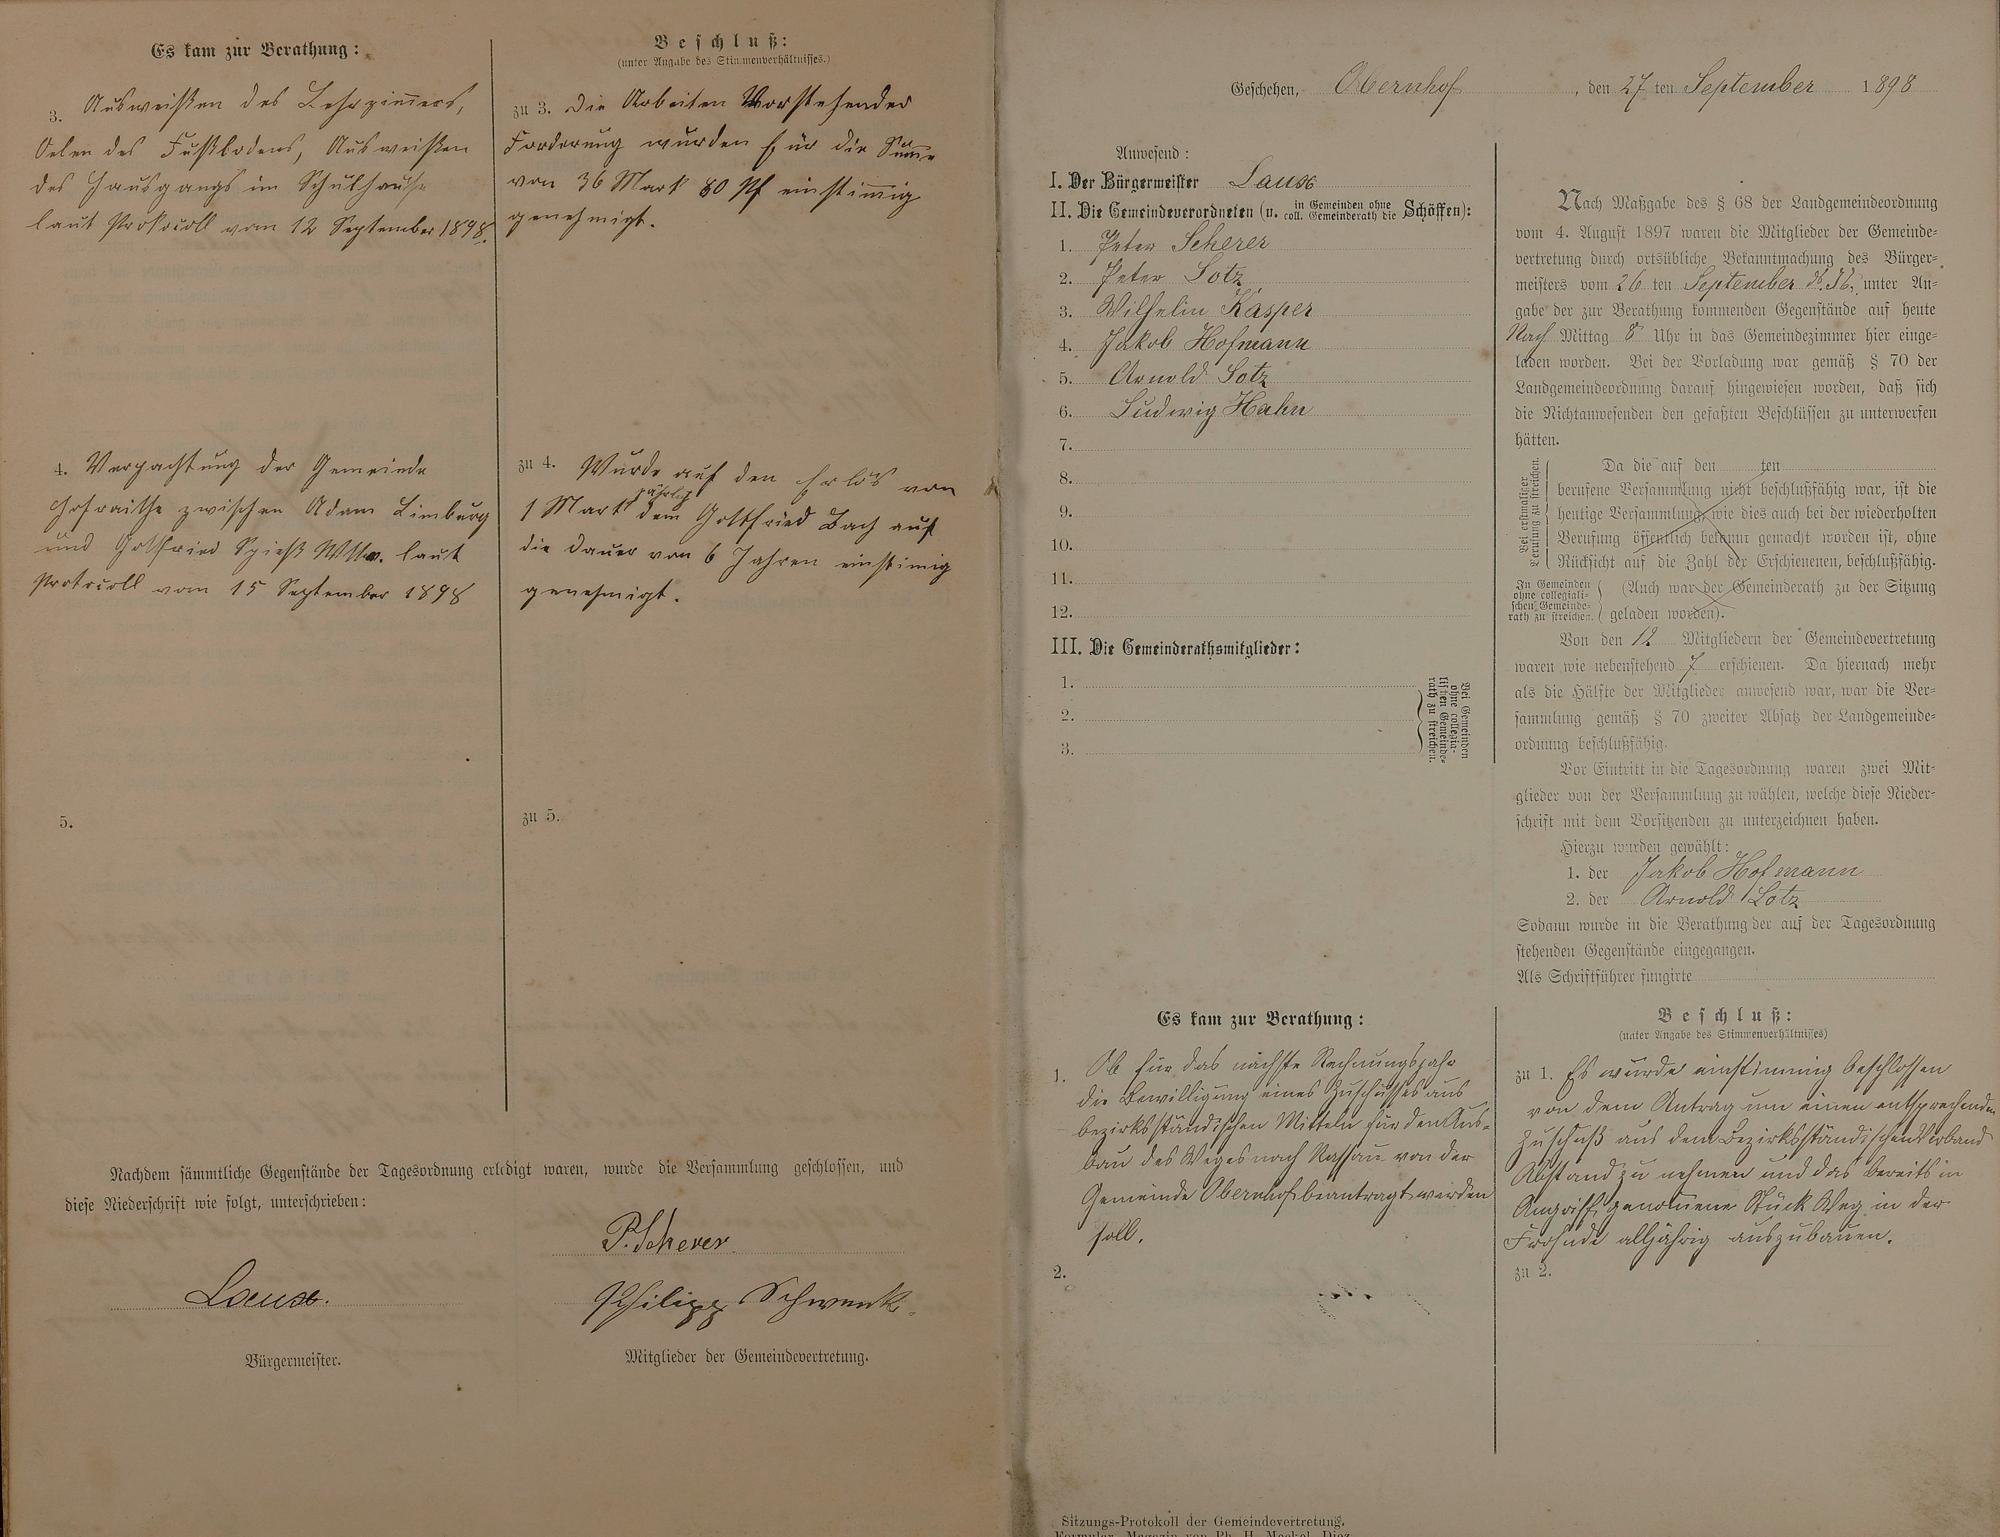 Es kam zur Berathung:
3. Ausweißen des Lehrzim̅ers,
Oelen des Fußbodens, Ausweißen
des Hausgangs im Schulhause
laut Protocoll vom 12 September 1898.
4. Verpachtung der Gemeinde
Hofraithe zwischen Adam Limburg
und Gottfried Spieß Wttw. laut
Protocoll vom 15 September 1898
5.
Beschluß:
(unter Angabe des Stimmenverhältnisses.)
zu 3. Die Arbeiten Vorstehender
Forderung wurden für die Sum̅e
von 36 Mark 80 Pf einstim̅ig
genehmigt.
zu 4. Wurde auf den Erlös von
1 Mark jährlich dem Gottfried Bach auf
die Dauer von 6 Jahren einstimig
genehmigt.
zu 5.
Nachdem sämmtliche Gegenstände der Tagesordnung erledigt waren, wurde die Versammlung geschlossen, und
diese Niederschrift wie folgt, unterschrieben:
P. Scherer
Laux.
Philipp Schwenk
Bürgermeister.
Mitglieder der Gemeindevertretung.
Geschehen, Obernhof, den 27 ten September 1898
Anwesend:
I. Der Bürgermeister Laux
II. Die Gemeindeverordneten (u. in Gemeinden ohne coll. Gemeinderath die Schöffen):
1. Peter Scherer
2. Peter Lotz
3. Wilhelm Kasper
4. Jakob Hofmann
5. Arnold Lotz
6. Ludwig Hahn
7.
8.
9.
10.
11.
12.
III. Die Gemeinderathsmitglieder:
1.
2.
3.
Bei Gemeinden
ohne collegia-
lischen Gemeinde-
rath zu streichen.
Nach Maßgabe des § 68 der Landgemeindeordnung
vom 4. August 1897 waren die Mitglieder der Gemeinde-
vertretung durch ortsübliche Bekanntmachung des Bürger-
meisters vom 26 ten September d. Js. unter An-
gabe der zur Berathung kommenden Gegenstände auf heute
Nach Mittag 8 Uhr in das Gemeindezimmer hier einge-
laden worden. Bei der Vorladung war gemäß § 70 der
Landgemeindeordnung darauf hingewiesen worden, daß sich
die Nichtanwesenden den gefaßten Beschlüssen zu unterwerfen
hätten.
Bei erstmaliger
Berufung zu streichen.
Da die auf den ten
berufene Versammlung nicht beschlußfähig war, ist die
heutige Versammlung, wie dies auch bei der wiederholten
Berufung öffentlich bekannt gemacht worden ist, ohne
Rücksicht auf die Zahl der Erschienenen, beschlußfähig.
In Gemeinden
ohne collegiali-
schen Gemeinde-
rath zu streichen.
(Auch war der Gemeinderath zu der Sitzung
geladen worden).
Von den 12 Mitgliedern der Gemeindevertretung
waren wie nebenstehend 7 erschienen. Da hiernach mehr
als die Hälfte der Mitglieder anwesend war, war die Ver-
sammlung gemäß § 70 zweiter Absatz der Landgemeinde-
ordnung beschlußfähig.
Vor Eintritt in die Tagesordnung waren zwei Mit-
glieder von der Versammlung zu wählen, welche diese Nieder-
schrift mit dem Vorsitzenden zu unterzeichnen haben.
Hierzu wurden gewählt:
1. der Jakob Hofmann
2. der Arnold Lotz
Sodann wurde in die Berathung der auf der Tagesordnung
stehenden Gegenstände eingegangen.
Als Schriftführer fungirte
Es kam zur Berathung:
1. Ob für das nächste Rechnungsjahr
die Bewilligung eines Zuschußes aus
bezirksständischen Mitteln für den Aus-
bau des Weges nach Nassau von der
Gemeinde Obernhof beantragt werden
soll.
2.
Beschluß:
(unter Angabe des Stimmenverhältnisses)
zu 1. Es wurde einstimmig beschlossen
von dem Antrag um einen entsprechenden
Zuschuß aus dem Bezirksständischen Verband
Abstand zu nehmen und das bereits in
Angriff genom̅ene Stück Weg in der
Frohnde alljährig auszubauen.
zu 2.
Sitzungs-Protokoll der Gemeindevertretung.
Formular-Magazin von Ph. H. Meckel, Diez.